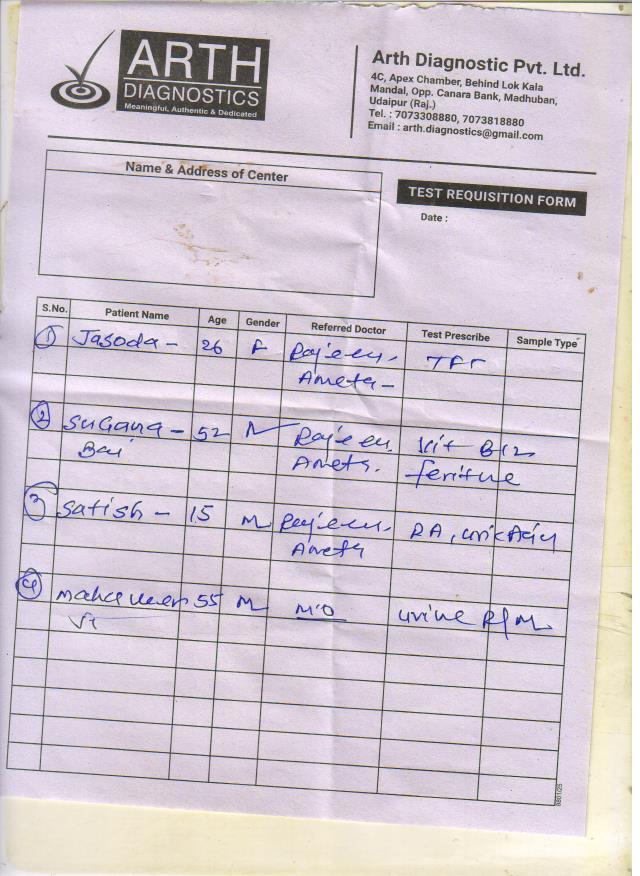 ARTH
DIAGNOSTICS
Meaningful, Authentic & Dedicated
Arth Diagnostic Pvt. Ltd.
4C, Apex Chamber, Behind Lok Kala
Mandal, Opp. Canara Bank, Madhuban,
Udaipur (Raj.)
Tel. : 7073308880, 7073818880
Email : arth.diagnostics@gmail.com
Name & Address of Center
TEST REQUISITION FORM
Date :
S.No. Patient Name Age Gender Referred Doctor Test Prescribe Sample Type
1 Jasoda - 26 F Rajeev. TFT
Ameta -
2 Sugana - 52 Rajeev. Vit B12
Bai Ameta. feritine
3 Satish - 15 M Rajeev. RA, uric Acid
Ameta
4 Mahaveer 55 M M'O urine R/M